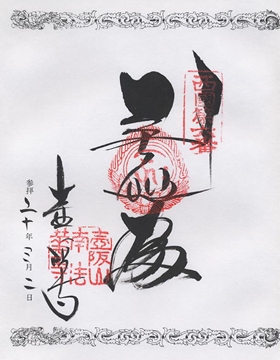 西國第六番
普照殿
壺阪寺
壺阪山
南法
華寺
参拝 二十年三月二日